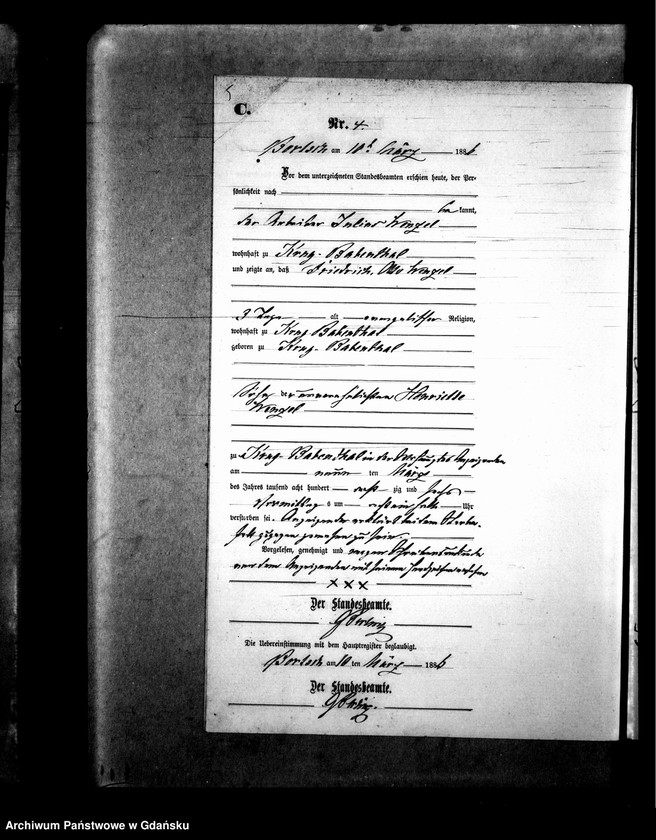 C.
Nr. 4.
am 10t März 1886
Vor dem unterzeichneten Standesbeamten erschien heute, der Per-
sönlichkeit nach
bekannt,
der Arbeiter Julius Wenzel
wohnhaft zu Krug-Babenthal
und zeigte an, daß Friedrich Otto Wenzel
3 Tage alt evangelischer Religion,
wohnhaft zu Krug Babenthal
geboren zu Krug-Babenthal
Sohn der unverehelichten Henriette
Wenzel
zu Krug-Babenthal in der Behausung des Anzeigenden
am neun ten März
des Jahres tausend acht hundert achtzig und sechs
Vormittags um acht ein halb Uhr
verstorben sei. Anzeigender erklärt bei dem Sterbe-
falle zugegen gewesen zu sein.
Vorgelesen, genehmigt und wegen Schreibensunkunde
von dem Anzeigenden mit seinem Handzeichen versehen
x x x
Der Standesbeamte.
Die Uebereinstimmung mit dem Hauptregister beglaubigt.
am 10 ten März 1886
Der Standesbeamte.
Archiwum Państwowe w Gdańsku